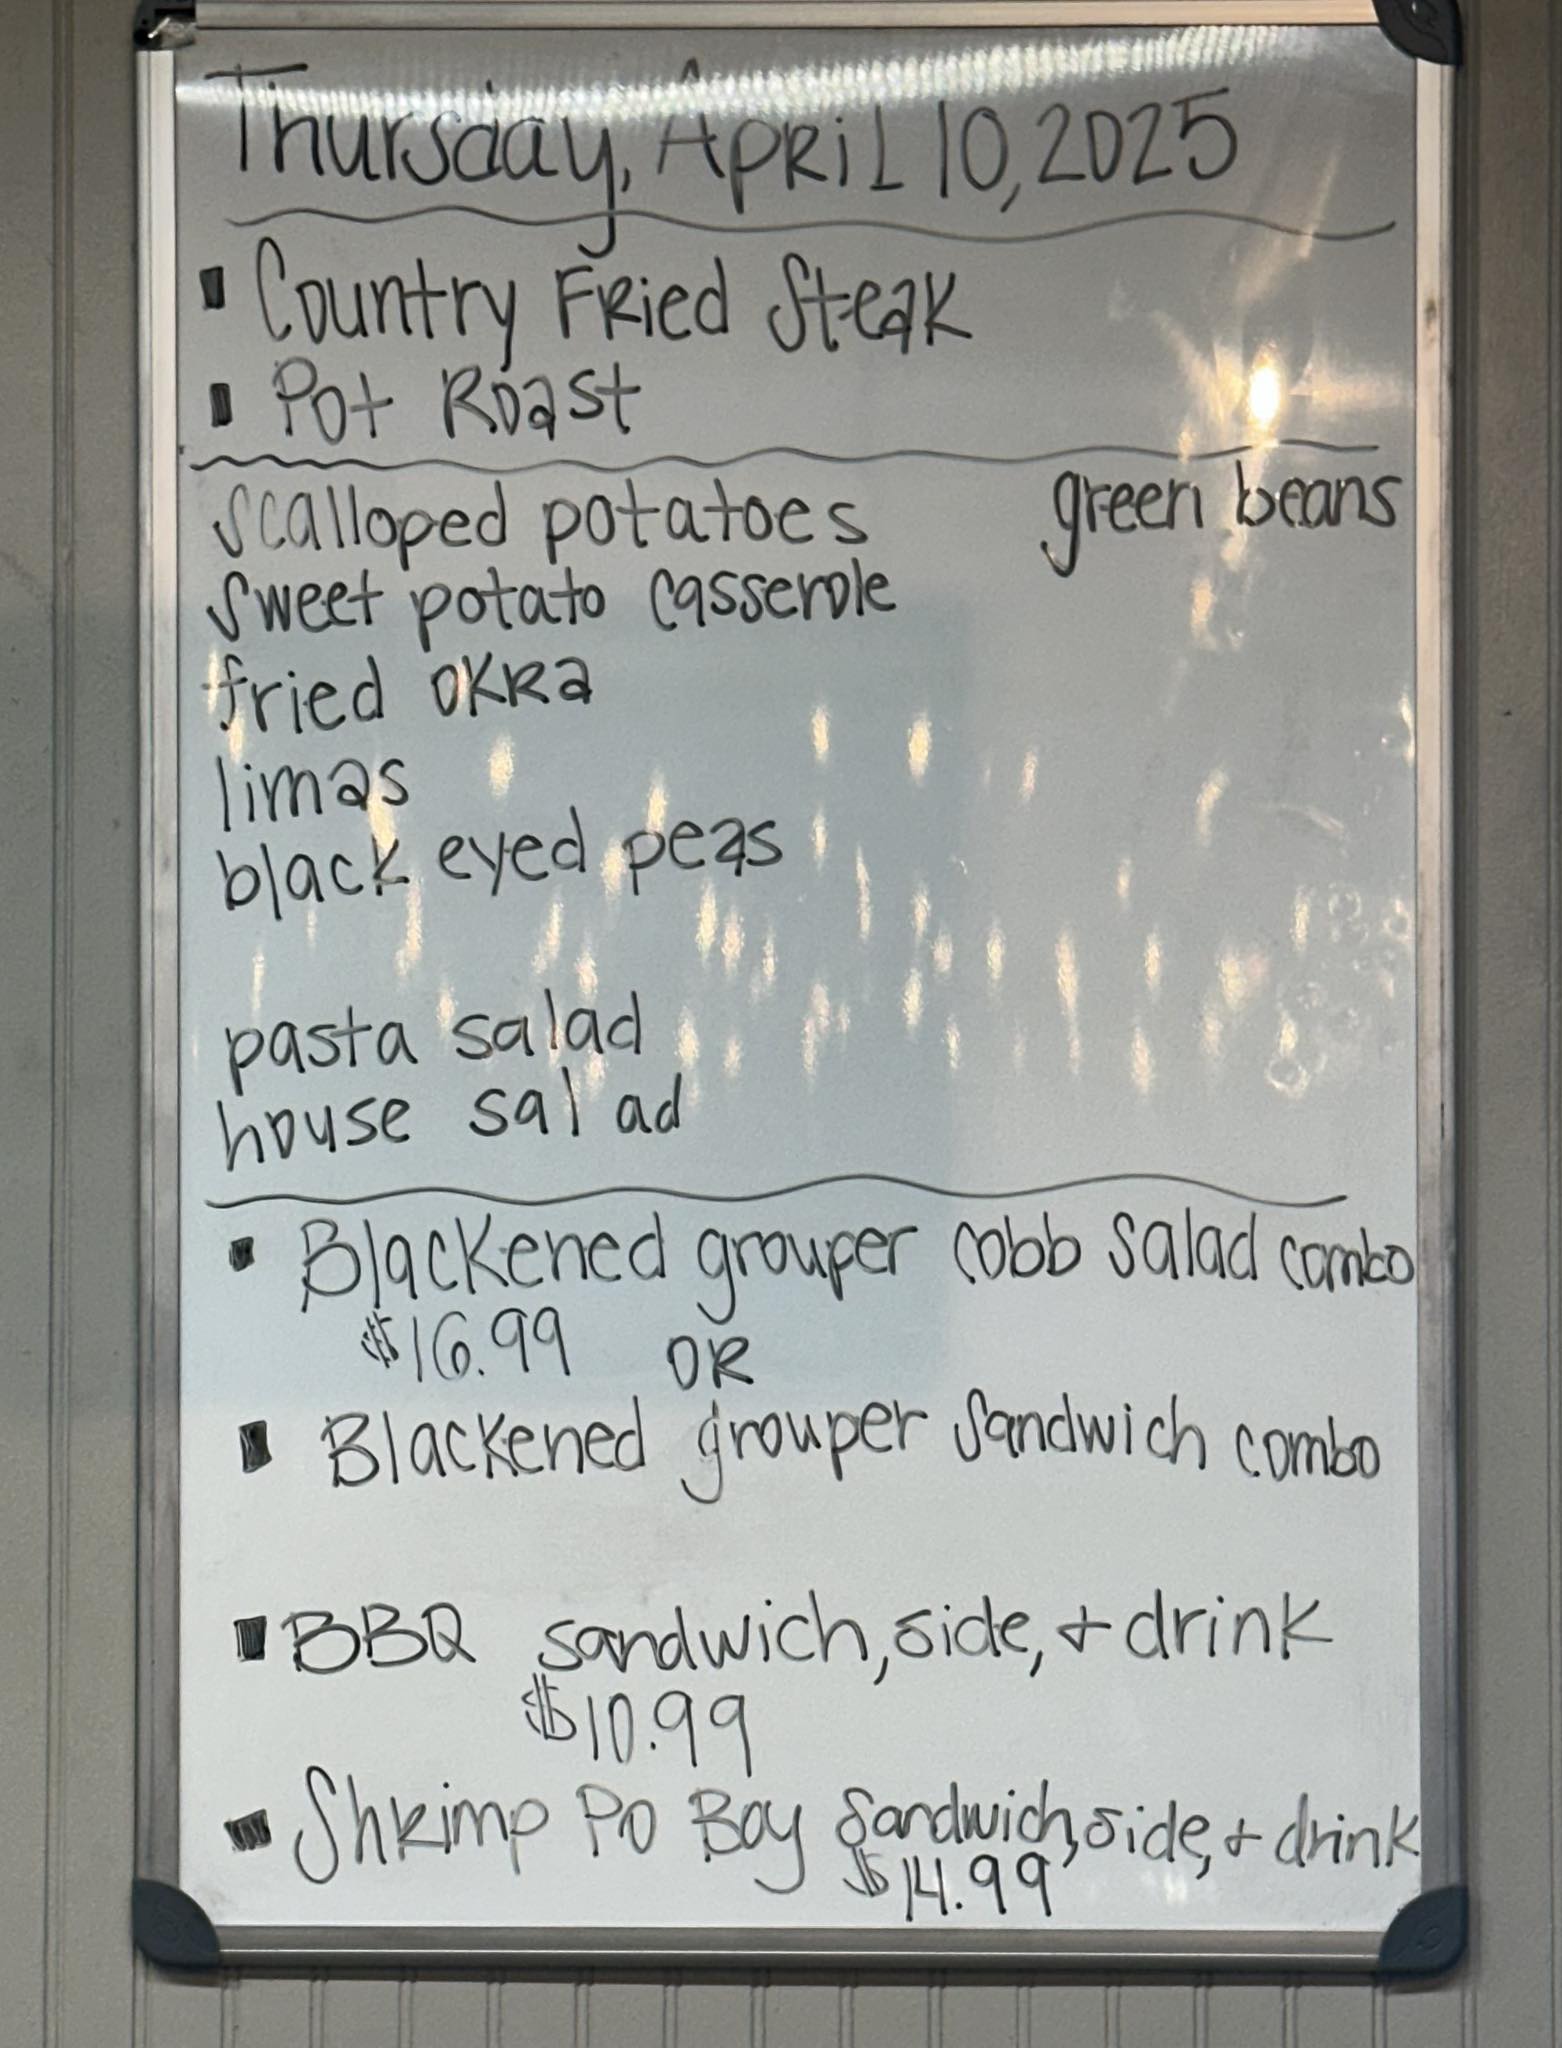 Thursday, April 10, 2025
▪ Country Fried Steak
▪ Pot Roast
scalloped potatoes green beans
sweet potato casserole
fried okra
limas
black eyed peas
pasta salad
house salad
▪ Blackened grouper cobb salad combo
$16.99 OR
▪ Blackened grouper sandwich combo
▪ BBQ sandwich, side, + drink
$10.99
▪ Shrimp Po Boy sandwich, side, + drink
$14.99